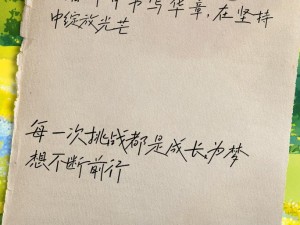 书写华章,在坚持
中绽放光芒
每一次挑战都是成长,为梦
想不断前行